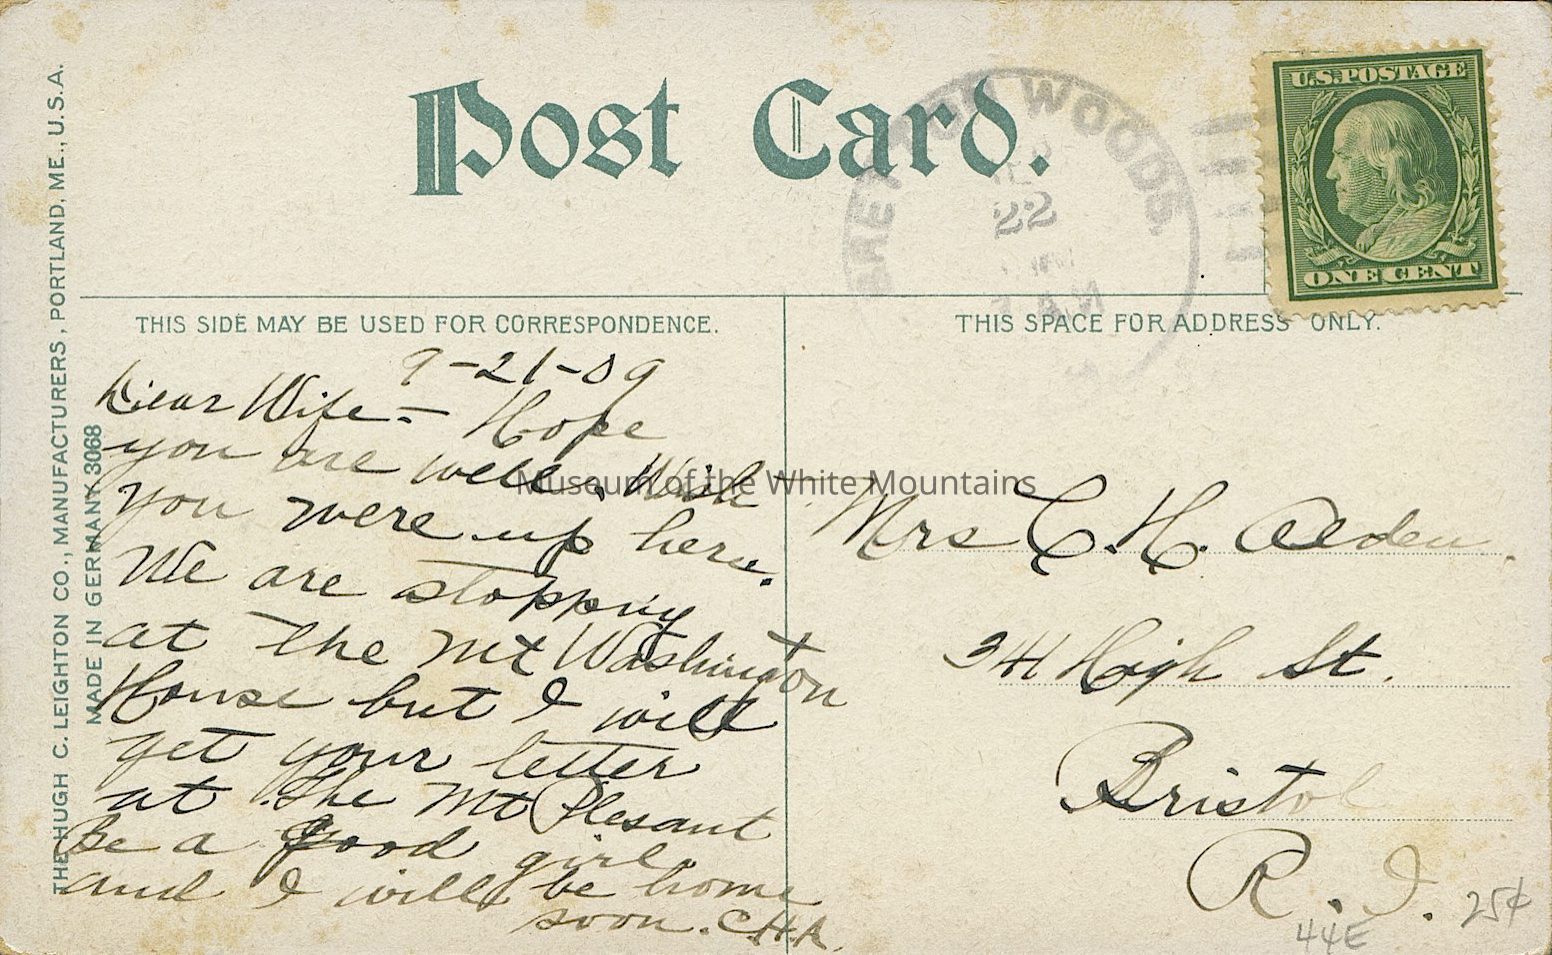 Post Card.
BRETTON WOODS.
22
U.S. POSTAGE
ONE CENT
THE HUGH C. LEIGHTON CO., MANUFACTURERS, PORTLAND, ME., U.S.A.
MADE IN GERMANY 3068
THIS SIDE MAY BE USED FOR CORRESPONDENCE.
9-21-09
Dear Wife - Hope
you are well. Wish
you were up here.
We are stopping
at the Mt Washington
House but I will
get your letter
at the Mt Plesant
Be a good girl
and I will be home
soon. C.H.A.
THIS SPACE FOR ADDRESS ONLY.
Mrs C. H. Alden.
341 High St.
Bristol
R. I.
25¢
44E
Museum of the White Mountains